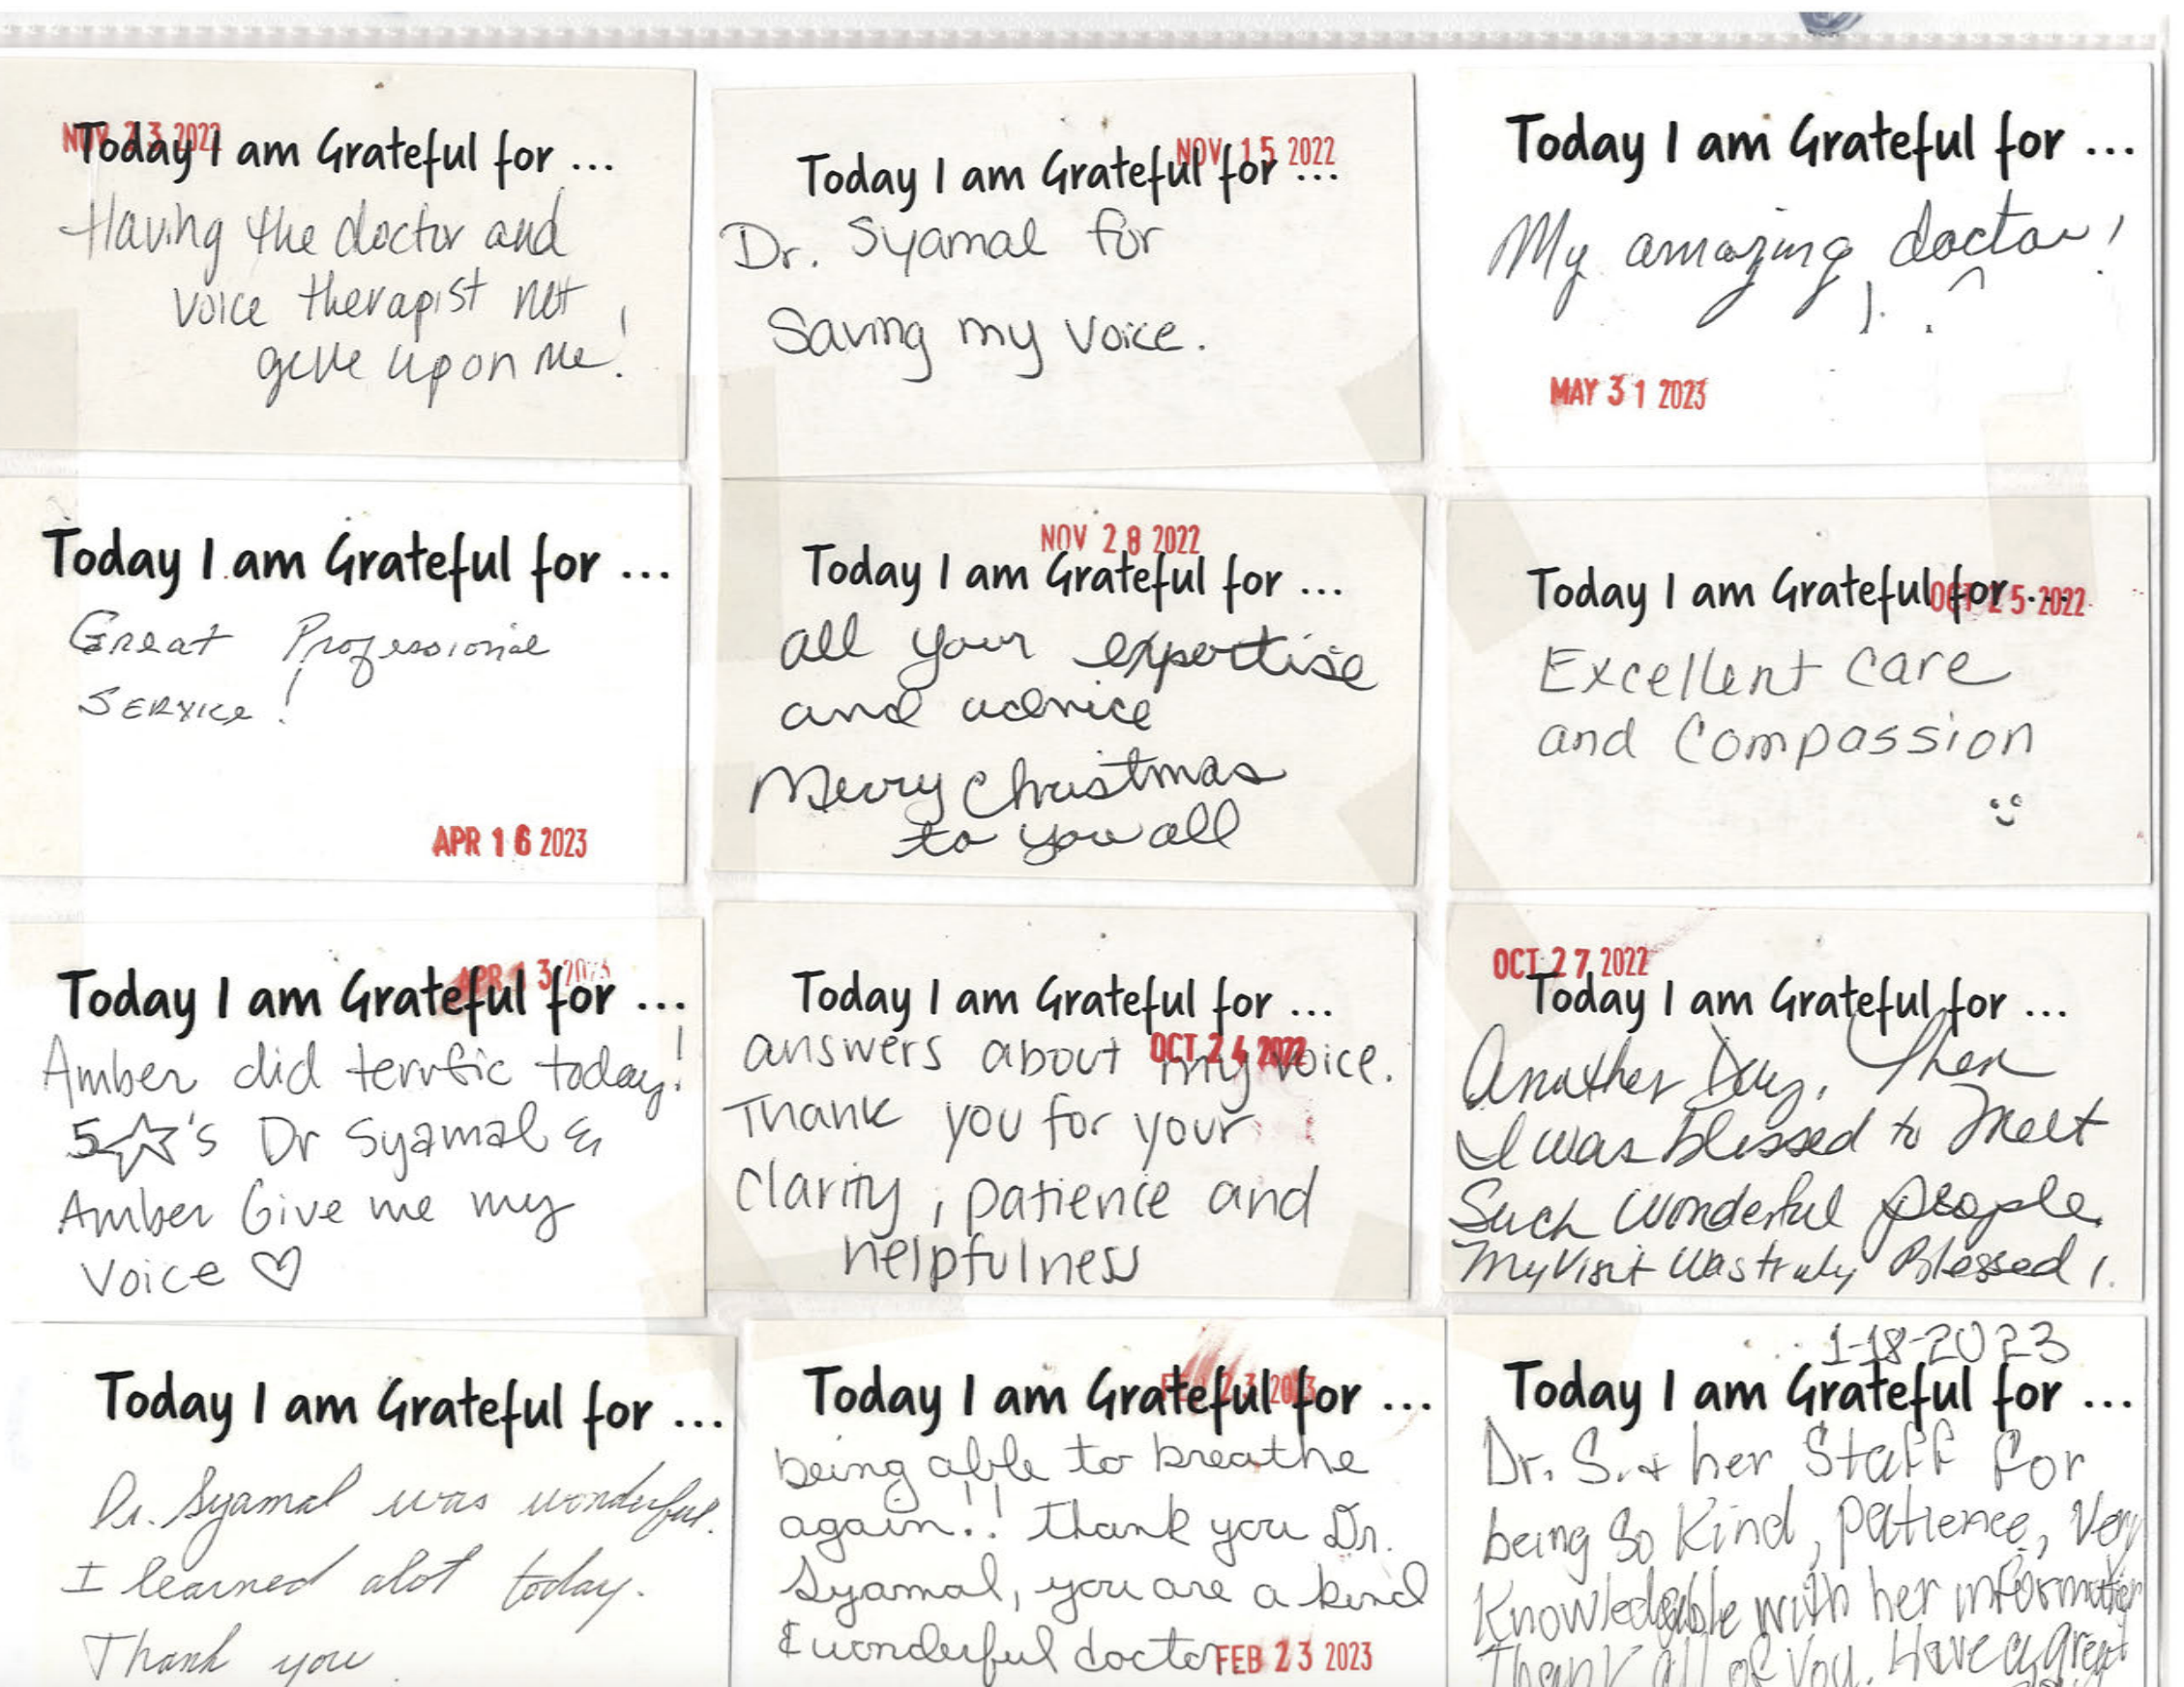 NOV 23 2022
Today I am Grateful for ...
Having the doctor and
voice therapist not
give up on me!
NOV 15 2022
Today I am Grateful for ...
Dr. Syamal for
Saving my voice.
Today I am Grateful for ...
My amazing doctor!
MAY 31 2023
Today I am Grateful for ...
Great Professional
Service!
APR 16 2023
NOV 28 2022
Today I am Grateful for ...
all your expertise
and advice
Merry Christmas
to you all
Today I am Grateful for ...
OCT 25 2022
Excellent care
and Compassion
APR 13 2023
Today I am Grateful for ...
Amber did terrific today!
5☆'s Dr Syamal &
Amber Give me my
voice ♡
Today I am Grateful for ...
answers about my voice.
OCT 24 2022
Thank you for your
clarity, patience and
helpfulness
OCT 27 2022
Today I am Grateful for ...
Another Day, Then
I was blessed to meet
Such Wonderful people.
My Visit Was truly Blessed!
Today I am Grateful for ...
Dr. Syamal was wonderful.
I learned alot today.
Thank you.
FEB 23 2023
Today I am Grateful for ...
being able to breathe
again!! Thank you Dr.
Syamal, you are a kind
& wonderful doctor
FEB 23 2023
1-18-2023
Today I am Grateful for ...
Dr. S. & her Staff for
being so Kind, patience, Very
Knowledgable with her information
Thank all of You. Have a great